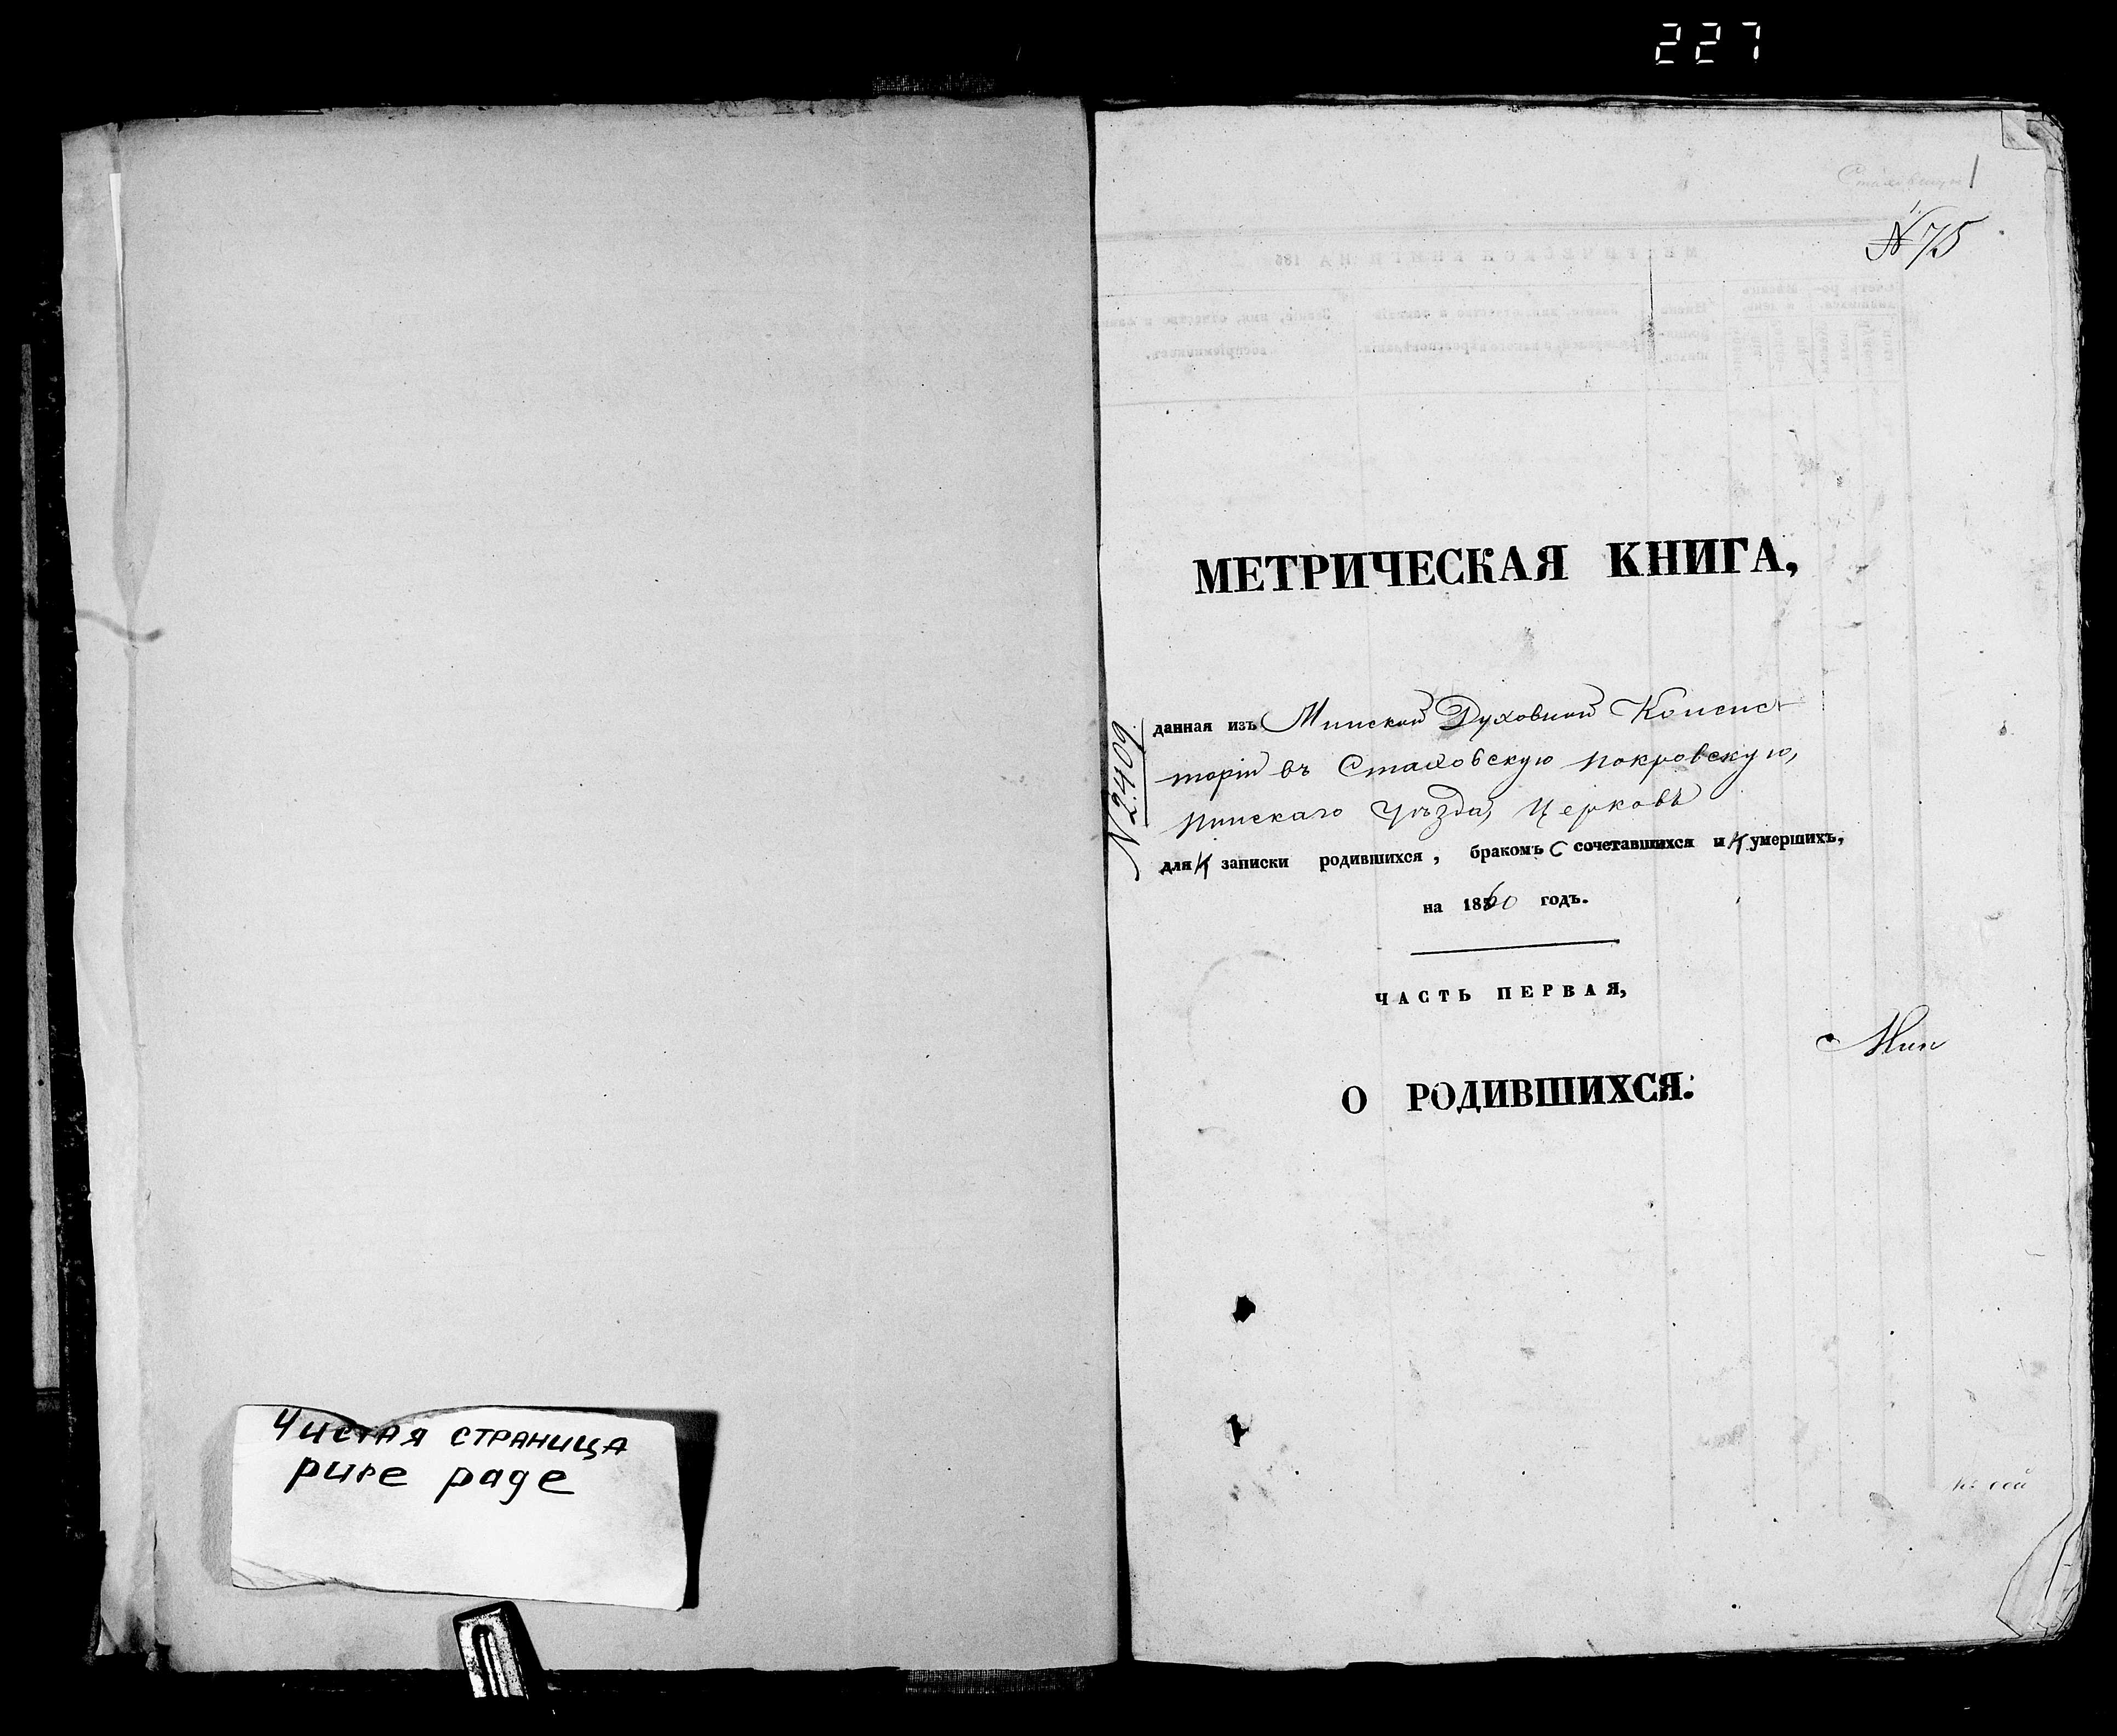 227
1
№ 75
МЕТРИЧЕСКАЯ КНИГА,
№ 2409
данная изъ Минской Духовной Консис
торіи въ Стаховскую Покровскую,
Пинскаго Уѣзда, Церковь
для записки родившихся, бракомъ сочетавшихся и умершихъ,
на 1860 годъ.
ЧАСТЬ ПЕРВАЯ,
Мин
О РОДИВШИХСЯ.
къ сей
Чистая страница
pure page